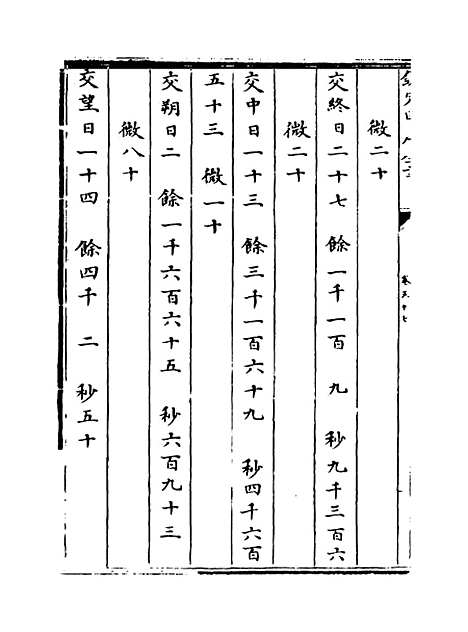 欽定四庫全書
卷五十七
微二十
交終日二十七 餘一千一百 九 秒九千三百六
微二十
交中日一十三 餘三千一百六十九 秒四千六百
五十三 微一十
交朔日二 餘一千六百六十五 秒六百九十三
微八十
交望日一十四 餘四千 二 秒五十